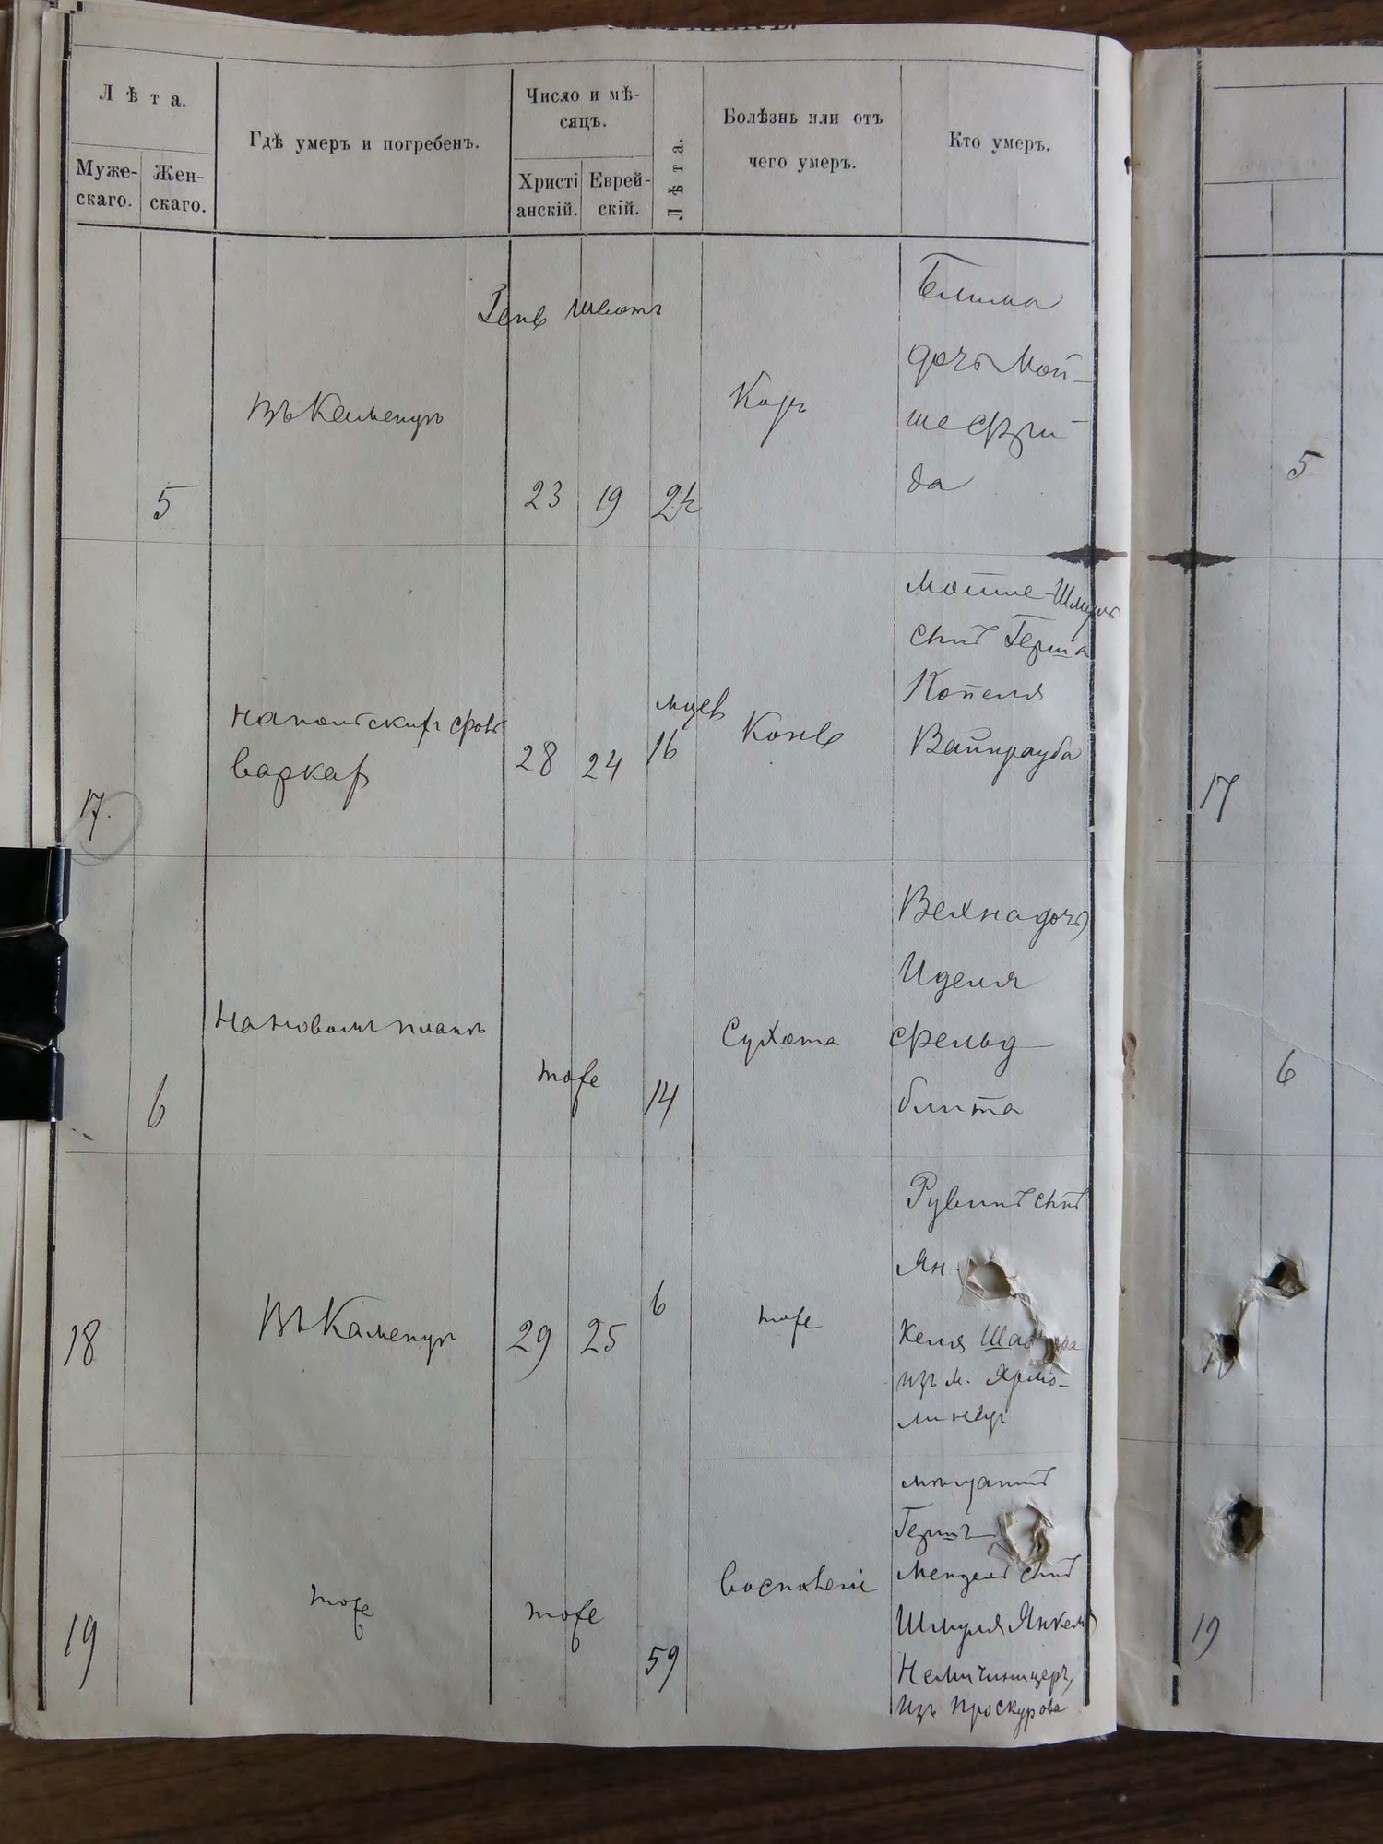 Лѣта.
Муже-
скаго.
Жен-
скаго.
Гдѣ умеръ и погребенъ.
Число и мѣ-
сяцъ.
Христі
анскій.
Еврей-
скій.
Лѣта.
Болѣзнь или отъ
чего умеръ.
Кто умеръ.
5
Въ Каменцѣ
Генв Шватъ
23 19 24
Корь
Блима
дочь Мой-
ше Фри
да
5
17.
фоль
варках
28 24
16
Мошке-Шмуль
сынъ Герша
Копеля
Вайнрауба
17
6
На новомъ планѣ
тоже
14
Сухота
Вехна дочь
Иделя
Фельд
блита
6
18
Въ Каменцѣ
29 25
6
тоже
Рувинъ сынъ
Ян
келя
изъ м. Ярмо-
линецъ
19
тоже
тоже
59
Мещанинъ
Гершъ
Мендель сынъ
Шмуля Янкеля
Немичиницеръ,
изъ Проскурова
19